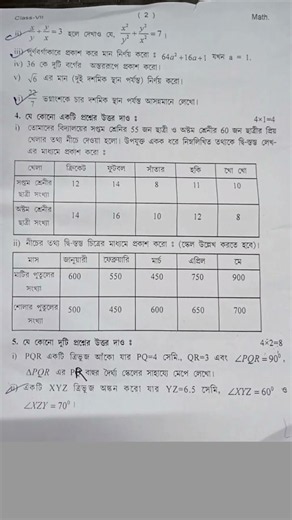 Class-VII ( 2 ) Math.
ii) x/y + y/x = 3 হলে দেখাও যে, x²/y² + y²/x² = 7 ।
iii) পূর্ণবর্গাকারে প্রকাশ করে মান নির্ণয় করো : 64a² + 16a + 1 যখন a = 1.
iv) 36 কে দুটি বর্গের অন্তররূপে প্রকাশ করো।
v) √6 এর মান (দুই দশমিক স্থান পর্যন্ত) নির্ণয় করো।
22/7 ভগ্নাংশকে চার দশমিক স্থান পর্যন্ত আসন্নমানে লেখো।
4. যে কোনো একটি প্রশ্নের উত্তর দাও : 4×1=4
i) তোমাদের বিদ্যালয়ের সপ্তম শ্রেণির 55 জন ছাত্রী ও অষ্টম শ্রেণির 60 জন ছাত্রীর প্রিয়
খেলার তথ্য নীচে দেওয়া হলো। উপযুক্ত একক ধরে নিম্নলিখিত তথ্যকে দ্বি-স্তম্ভ লেখ-
এর মাধ্যমে প্রকাশ করো :
খেলা ক্রিকেট ফুটবল সাঁতার হকি খো খো
সপ্তম শ্রেনীর ছাত্রী সংখ্যা 12 14 8 11 10
অষ্টম শ্রেনীর ছাত্রী সংখ্যা 14 16 10 12 8
ii) নীচের তথ্য দ্বি-স্তম্ভ চিত্রের মাধ্যমে প্রকাশ করো : (স্কেল উল্লেখ করতে হবে)।
মাস জানুয়ারী ফেব্রুয়ারি মার্চ এপ্রিল মে
মাটির পুতুলের সংখ্যা 600 550 450 750 900
শোলার পুতুলের সংখ্যা 500 450 600 650 700
5. যে কোনো দুটি প্রশ্নের উত্তর দাও : 4×2=8
i) PQR একটি ত্রিভুজ আঁকো যার PQ=4 সেমি, QR=3 এবং ∠PQR = 90⁰,
ΔPQR এর PR বাহুর দৈর্ঘ্য স্কেলের সাহায্যে মেপে লেখো।
ii) একটি XYZ ত্রিভুজ অঙ্কন করো যার YZ=6.5 সেমি, ∠XYZ = 60⁰ ও
∠XZY = 70⁰ ।